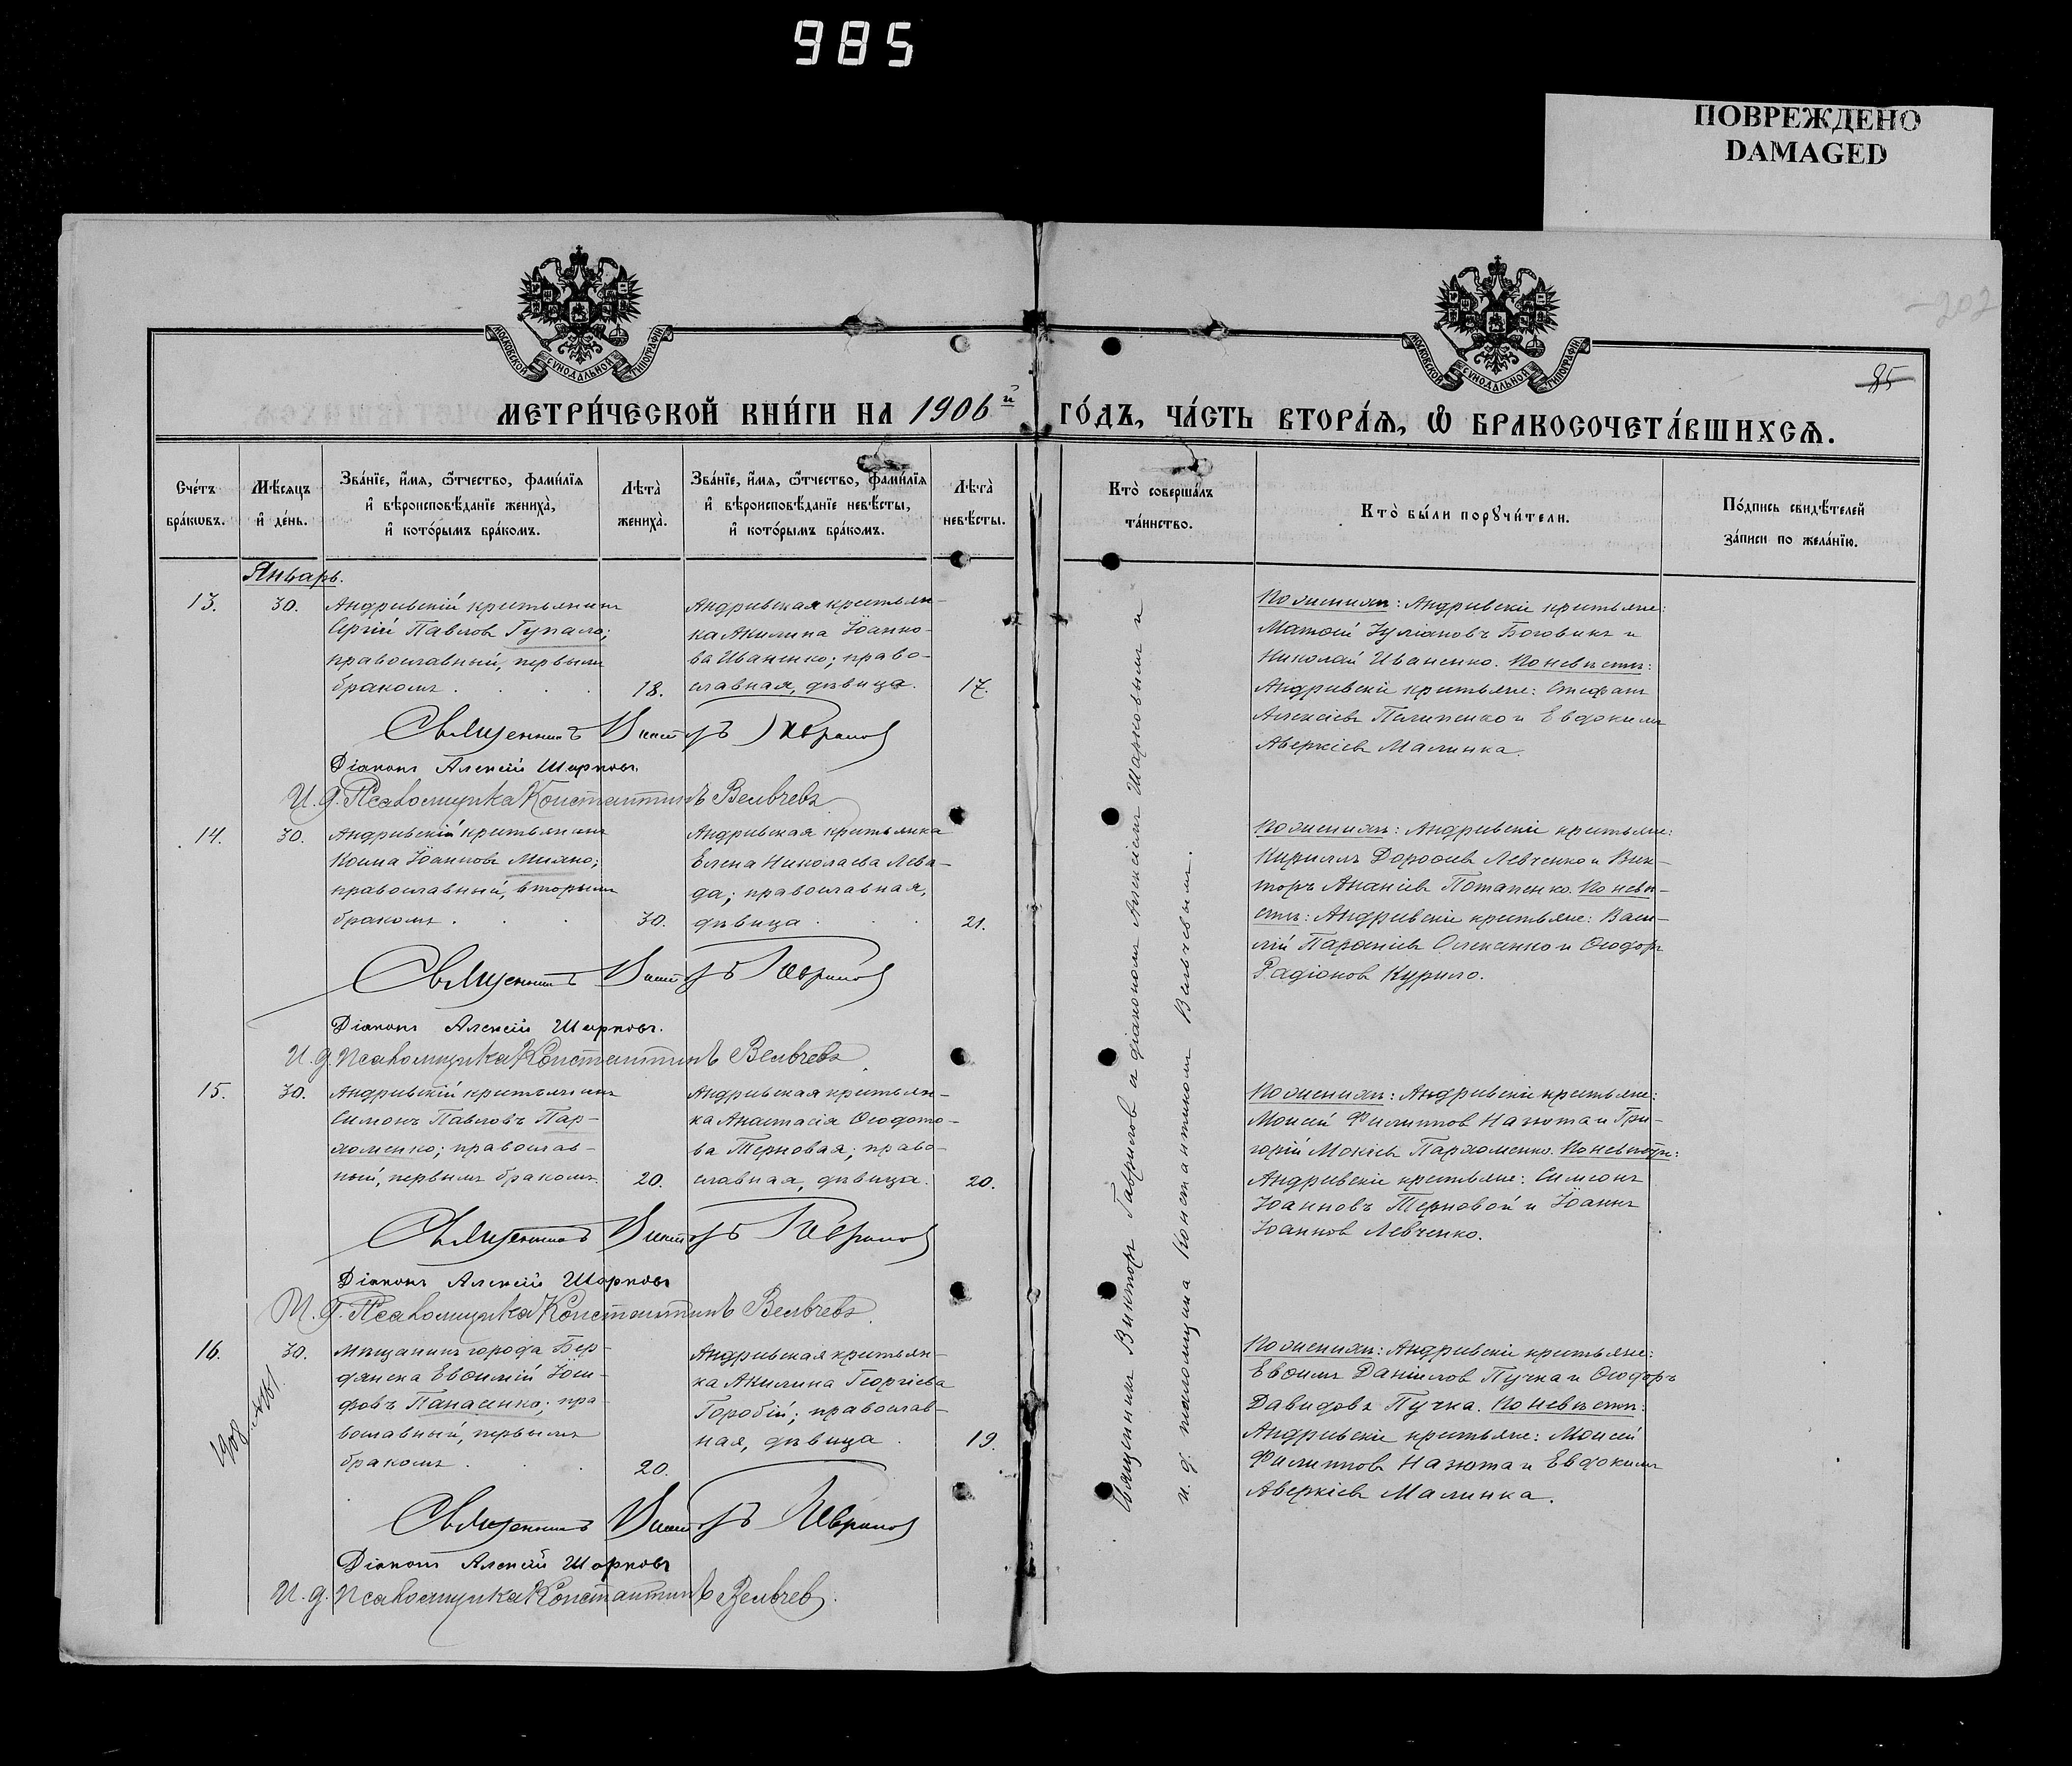 985
ПОВРЕЖДЕНО
DAMAGED
202
85
МОСКОВСКОЙ СѴНОДАЛЬНОЙ ТИПОГРАФІИ
МОСКОВСКОЙ СѴНОДАЛЬНОЙ ТИПОГРАФІИ
МЕТРИ́ЧЕСКОЙ КНИ́ГИ НА 1906й ГО́ДЪ, ЧА́СТЬ ВТОРА́Ѧ, Ѡ БРАКОСОЧЕТА́ВШИХСѦ.
Сче́тъ
бра́кѡвъ.
Мѣ́сяцъ
и҆ де́нь.
Зва́нїе, и҆́мѧ, ѻ҆́тчество, фами́лїѧ
и҆ вѣроисповѣ́данїе жениха̀,
и҆ кото́рымъ бра́комъ.
Лѣта̀
жениха̀.
Зва́нїе, и҆́мѧ, ѻ҆́тчество, фами́лїѧ
и҆ вѣроисповѣ́данїе невѣ́сты,
и҆ кото́рымъ бра́комъ.
Лѣта̀
невѣ́сты.
Кто̀ соверша́лъ
та́инство.
Кто̀ бы́ли порꙋчи́тели.
По́дпись свидѣ́телей
за́писи по жела́нїю.
Январь.
13.
30.
Андреевскій крестьянинъ
Сергій Павловъ Гупало;
православный, первымъ
бракомъ . . .
18.
Андреевская крестьян-
ка Акилина Іоанно-
ва Иваненко; право-
славная, дѣвица.
17.
Поженихѣ: Андреевскіе крестьяне:
Матѳій Іуліановъ Боговикъ и
Николай Иваненко. Поневѣстѣ:
Андреевскіе крестьяне: Стефанъ
Алексіевъ Пилипенко и Евдокимъ
Аверкіевъ Малинка.
Священникъ Викторъ Гавриловъ
Діаконъ Алексій Шарковъ.
И. д. Псаломщика Константинъ Вельчевъ
14.
30.
Андреевскій крестьянинъ
Косма Іоанновъ Михно;
православный, вторымъ
бракомъ . . .
30.
Андреевская крестьянка
Елена Николаева Лева-
да; православная,
дѣвица . . .
21.
Поженихѣ: Андреевскіе крестьяне:
Кириллъ Дороѳеевъ Левченко и Вик-
торъ Ананіевъ Потапенко. Поневѣ-
стѣ: Андреевскіе крестьяне: Васи-
лій Парѳеніевъ Олеканко и Ѳеодоръ
Радіоновъ Курило.
Священникъ Викторъ Гавриловъ
Діаконъ Алексій Шарковъ.
И. д. Псаломщика Константинъ Вельчевъ
15.
30.
Андреевскій крестьянинъ
Симонъ Павловъ Пар-
хоменко; православ-
ный, первымъ бракомъ.
20.
Андреевская крестьян-
ка Анастасія Ѳеодото-
ва Терновая; право-
славная, дѣвица.
20.
Поженихѣ: Андреевскіе крестьяне:
Моисей Филипповъ Назюта и Гри-
горій Мокіевъ Пархоменко. Поневѣстѣ:
Андреевскіе крестьяне: Симеонъ
Іоанновъ Терновой и Іоаннъ
Іоанновъ Левченко.
Священникъ Викторъ Гавриловъ
Діаконъ Алексій Шарковъ
И. д. Псаломщика Константинъ Вельчевъ.
16.
30.
Мѣщанинъ города Бер-
дянска Евѳимій Іоси-
фовъ Панасенко; пра-
вославный, первымъ
бракомъ . . .
20.
Андреевская крестьян-
ка Акилина Георгіева
Горобій; православ-
ная, дѣвица .
19.
Поженихѣ: Андреевскіе крестьяне:
Евѳимъ Даніиловъ Пучка и Ѳеодоръ
Давидовъ Пучка. Поневѣстѣ:
Андреевскіе крестьяне: Моисей
Филипповъ Назюта и Евдокимъ
Аверкіевъ Малинка.
1908
Священникъ Викторъ Гавриловъ
Діаконъ Алексій Шарковъ
И. д. Псаломщика Константинъ Вельчевъ.
Священникъ Викторъ Гавриловъ съ діакономъ Алексіемъ Шарковымъ и
и. д. псаломщика Константиномъ Вельчевымъ.